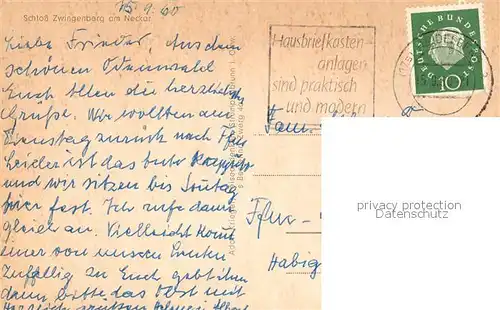 15.9.60
Schloß Zwingenberg am Neckar
Liebe Frieder, Aus dem
schönen Odenwald
Euch Allen die herzlichsten
Grüße. Wir wollten am
Dienstag zurück nach Ffm
Leider ist das Auto kaputt
und wir sitzen bis Sontag
hier fest. Ich rufe dann
gleich an. Vielleicht komt
einer von unseren Leuten
Zufällig zu Euch gebt ihm
dann bitte das Obst mit
Hausbriefkasten-
anlagen
sind praktisch
und modern
DEUTSCHE BUNDESPOST
10
Fam.
Ffm -
Habig
privacy protection
Datenschutz